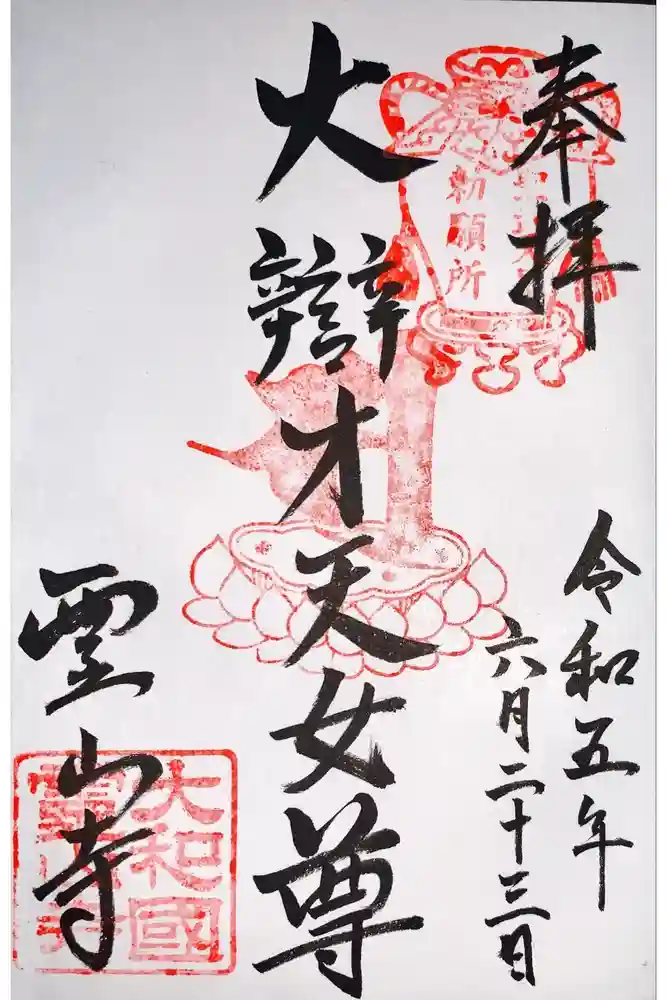 奉拝
令和五年
六月二十三日
勅願所
大辯才天女尊
霊山寺
大和國